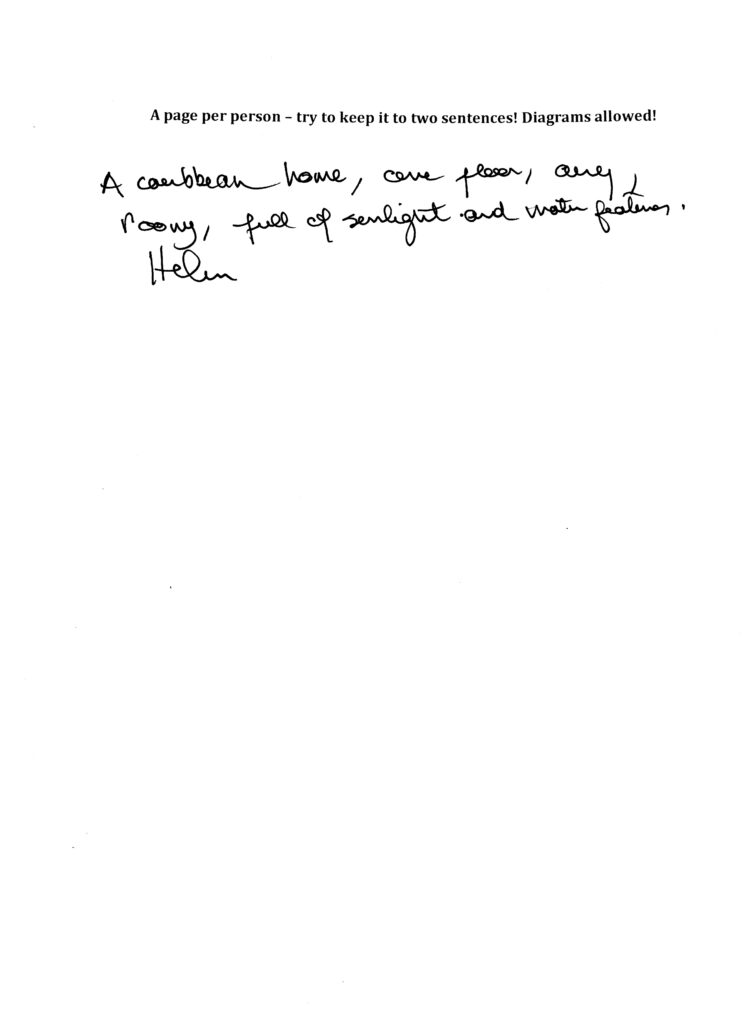 A page per person – try to keep it to two sentences! Diagrams allowed!
A caribbean home, one floor, airy,
roomy, full of sunlight and water features.
Helen